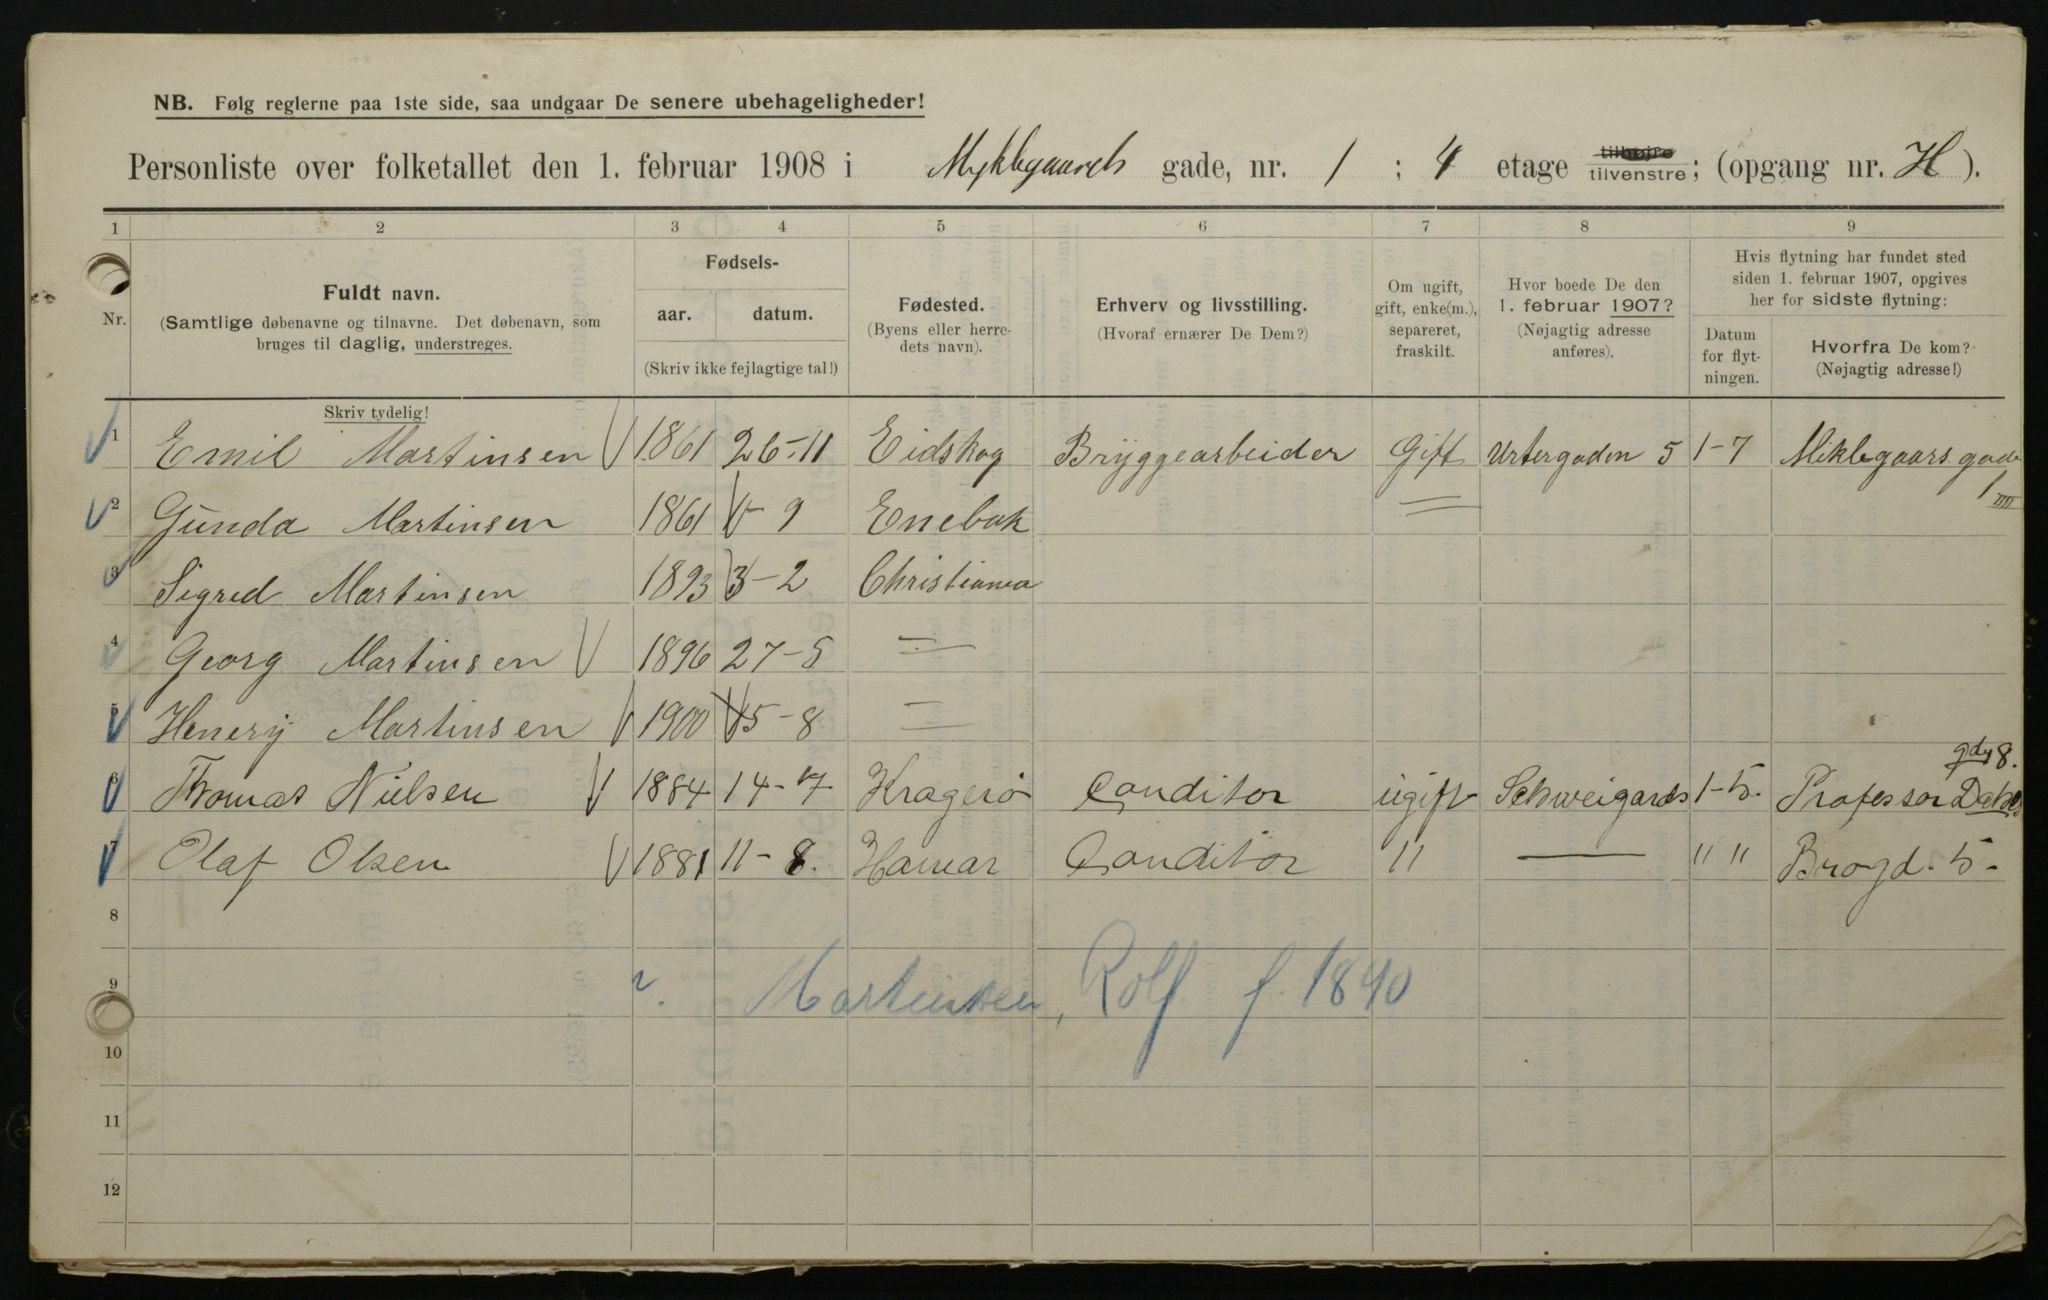 NB. Følg reglerne paa 1ste side, saa undgaar De senere ubehageligheder!
Personliste over folketallet den 1. februar 1908 i Myklegaards gade, nr. 1 ; 4 etage tilhøjre tilvenstre; (opgang nr. H ).
1 2 3 4 5 6 7 8 9
Nr. Fuldt navn. (Samtlige døbenavne og tilnavne. Det døbenavn, som bruges til daglig, understreges.
Fødsels- aar. datum. (Skriv ikke fejlagtige tal!)
Fødested. (Byens eller herredets navn).
Erhverv og livsstilling. (Hvoraf ernærer De Dem?)
Om ugift, gift, enke(m.), separeret, fraskilt.
Hvor boede De den 1. februar 1907? (Nøjagtig adresse anføres).
Hvis flytning har fundet sted siden 1. februar 1907, opgives her for sidste flytning:
Datum for flytningen. Hvorfra De kom? (Nøjagtig adresse!)
Skriv tydelig!
1 Emil Martinsen 1861 26-11 Eidskog Bryggearbeider Gift Urtergaden 5 1-7 Miklegaars gade 1 IIII
2 Gunda Martinsen 1861 - 9 Enebak =
3 Sigred Martinsen 1893 3-2 Christiania
4 Georg Martinsen 1896 27-5 =
5 Henery Martinsen 1900 5-8 =
6 Thomas Nielsen 1884 14-7 Kragerø Conditor ugift Schweigards 1-5. Professor Dahls gd 8.
7 Olaf Olsen 1881 11-8. Hamar Conditor " — " " Brogd. 5-
8
9 Martinsen, Rolf f. 1890
10
11
12